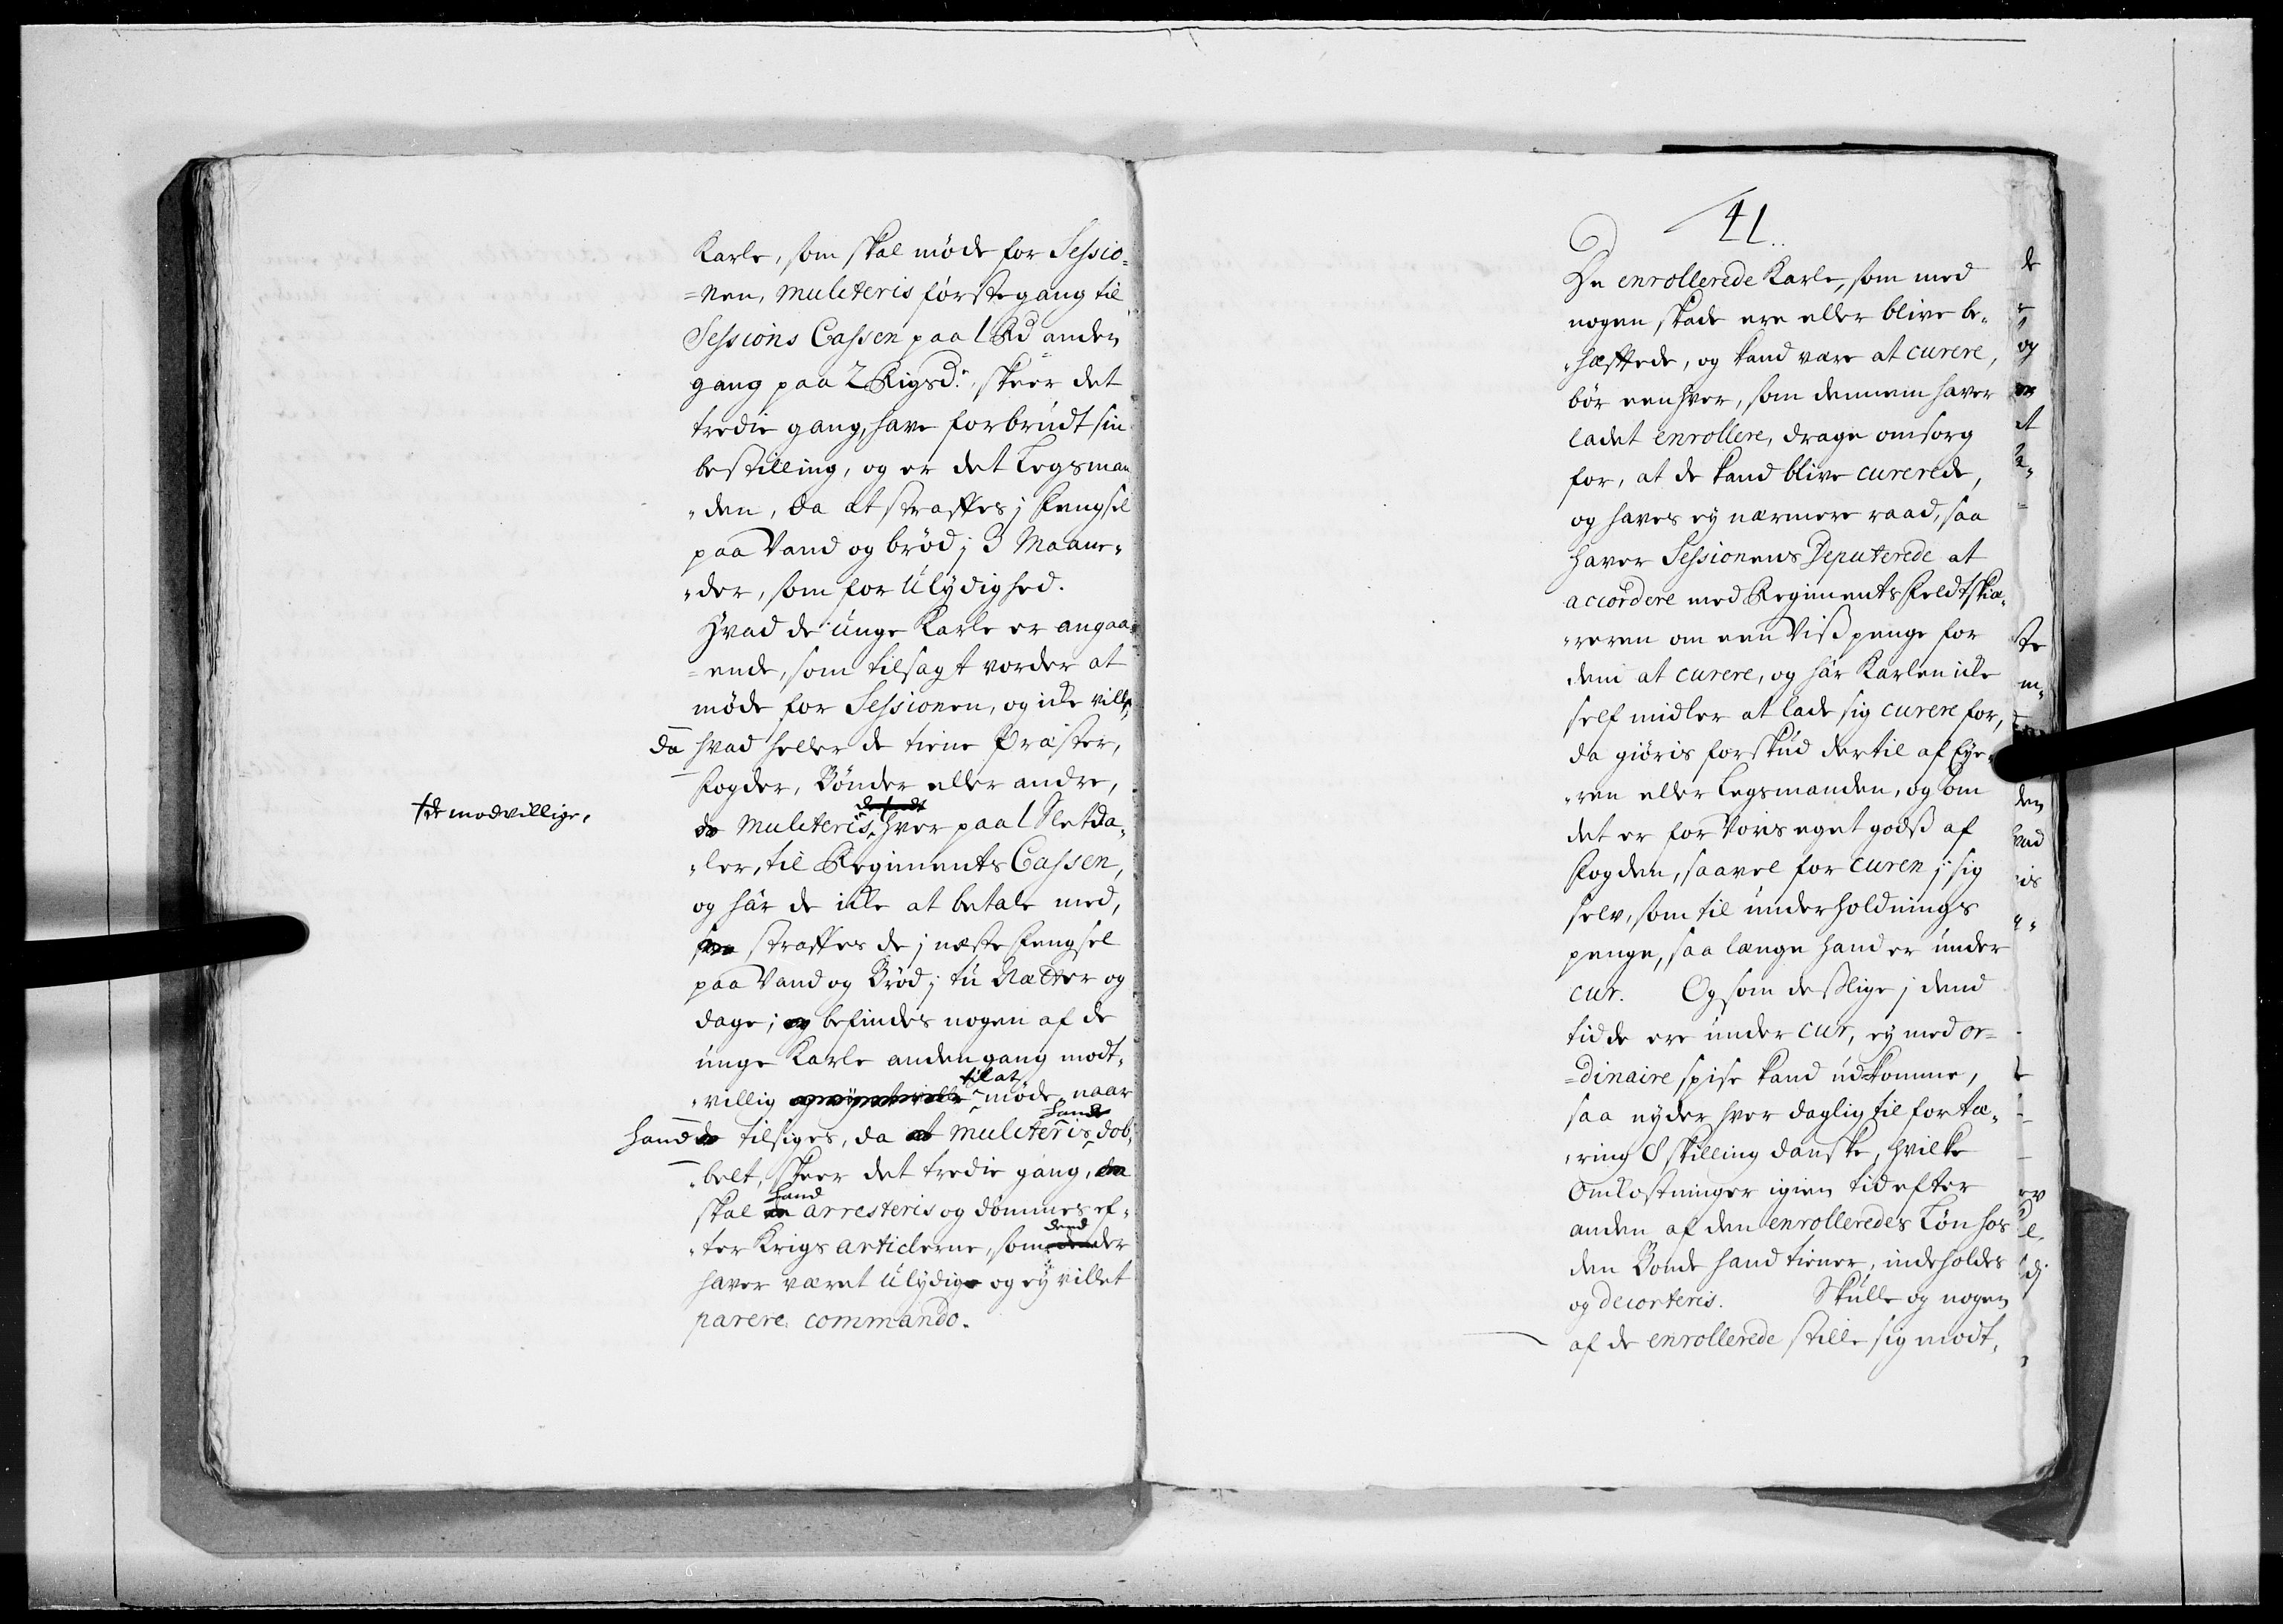 Karle, som skal møde for Sessio=
=nen, mulcteris første gang til
Sessions Cassen paa 1 Rd anden
gang paa 2 Rigsd.r, skeer det
tredie gang, have forbrudt sin
bestilling, og er det Legsman
„den, da at straffes j Fengsel
paa Vand og brød j 3 Maane„
„der, som for Ulydighed.
Hvad de unge Karle er angaa„
=ende, som tilsagt vorder at
møde for Sessionen, og icke ville,
da hvad heller de tiene Præster,
Fogder, Bønder eller andre,
†de modvillige,
da mulcteris, hver paa 1 Sletda„
„ler, til Regiments Cassen,
og har de icke at betale med,
straffes de j næste Fengsel
paa Vand og Brød j tu Nætter og
dage; og befindes nogen af de
unge Karle anden gang modt„
til at
„villig møde, naar
hand
hand de tilsiges, da at mulcteris dob„
„belt, skeer det tredie gang, da
hand
skal arresteris og dømmes ef„
dend
„ter Krigs articlerne, som der
haver været Ulydige og ey villet
parere commando.
41
De enrollerede Karle, som med
nogen skade ere eller blive be„
„hæftede, og kand være at curere,
bør een hver, som dennem haver
ladet enrollere, drage omsorg
for, at de kand blive curerede,
og haves ey nærmere raad, saa
haver Sessionens Deputerede at
accordere med Regiments Feldtskiæ„
„reren om een Viss penge for
dem at curere, og har Karlen icke
self midler at lade sig curere for,
da giøris forskud dertil af Eye„
„ren eller Legsmanden, og om
det er for Voris eget godss af
Fogden, saavel for curen j sig
selv, som til underholdnings
penge, saa længe hand er under
cur. Og som desslige j dend
tid de ere under cur, ey med or=
=dinaire spise kand udkomme,
saa nyder hver daglig til fortæ„
„ring 8 skilling danske, hvilke
Omkostninger igien tid efter
anden af den enrolleredes Løn hos
den Bonde hand tiener, indeholdes
og decorteris. Skulle og nogen
af de enrollerede stille sig modt„